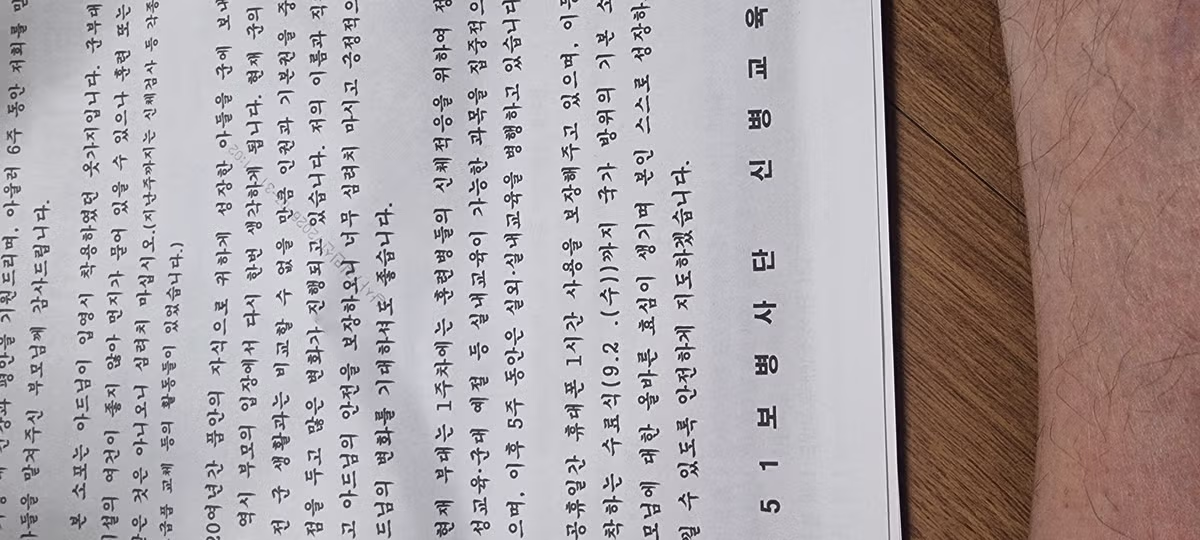 건강과 평안을 기원드리며, 아울러 6주 동안 저희를 믿
아들을 맡겨주신 부모님께 감사드립니다.
본 소포는 아드님이 입영시 착용하였던 옷가지입니다. 군부대
시설의 여건이 좋지 않아 먼지가 묻어 있을 수 있으나 훈련 또는
은 것은 아니오니 심려치 마십시오.(지난주까지는 신체검사 등 각종
급품 교체 등의 활동들이 있었습니다.)
20여년간 품안의 자식으로 귀하게 성장한 아들을 군에 보내
역시 부모의 입장에서 다시 한번 생각하게 됩니다. 현재 군의
전 군 생활과는 비교할 수 없을 만큼 인권과 기본권을 중
점을 두고 많은 변화가 진행되고 있습니다. 저의 이름과 직
고 아드님의 안전을 보장하오니 너무 심려치 마시고 긍정적으
드님의 변화를 기대하셔도 좋습니다.
현재 부대는 1주차에는 훈련병들의 신체적응을 위하여 정
성교육·군대 예절 등 실내교육이 가능한 과목을 집중적으
으며, 이후 5주 동안은 실외·실내교육을 병행하고 있습니다
공휴일간 휴대폰 1시간 사용을 보장해주고 있으며, 이
착하는 수료식(9.2 .(수))까지 국가 방위의 기본 소
모님에 대한 올바른 효심이 생기며 본인 스스로 성장하
될 수 있도록 안전하게 지도하겠습니다.
5 1 보 병 사 단 신 병 교 육